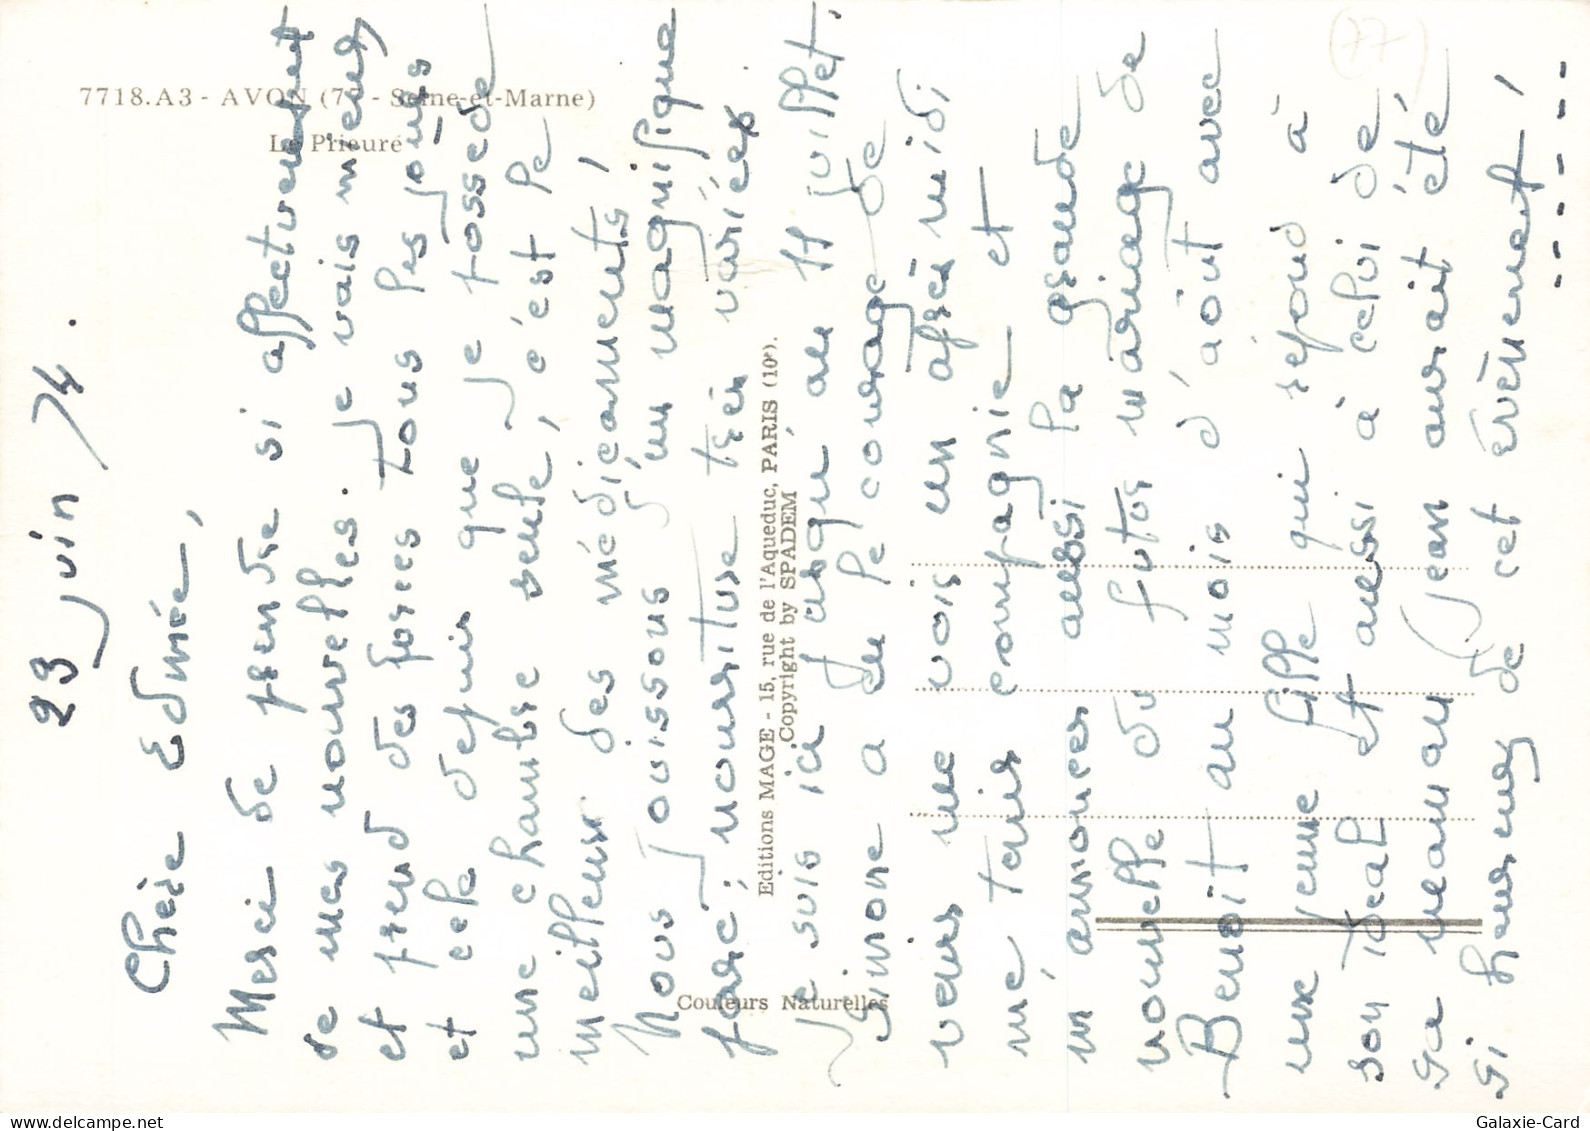 7718.A3 - AVON (77 - Seine-et-Marne)
Le Prieuré
77
23 juin 74.
Chère Edmée,
Merci de prendre si affectueusement
de mes nouvelles. Je vais mieux
et prend des forces tous les jours
et cela depuis que je possède
une chambre seule, c'est le
meilleur des médicaments !
Nous jouissons d'un magnifique
parc ; nourriture très variée.
Je suis ici jusqu'au 11 juillet.
Simone a eu le courage de
venir me voir un après midi
me tenir compagnie et
m'annoncer aussi la grande
nouvelle du futur mariage de
Benoît au mois d'août avec
une jeune fille qui répond à
son idéal et aussi à celui de
sa maman (Jean aurait été
si heureux de cet évènement !
Editions MAGE - 15, rue de l'Aqueduc, PARIS (10e).
Copyright by SPADEM
Couleurs Naturelles
delcampe.net
Galaxie-Card